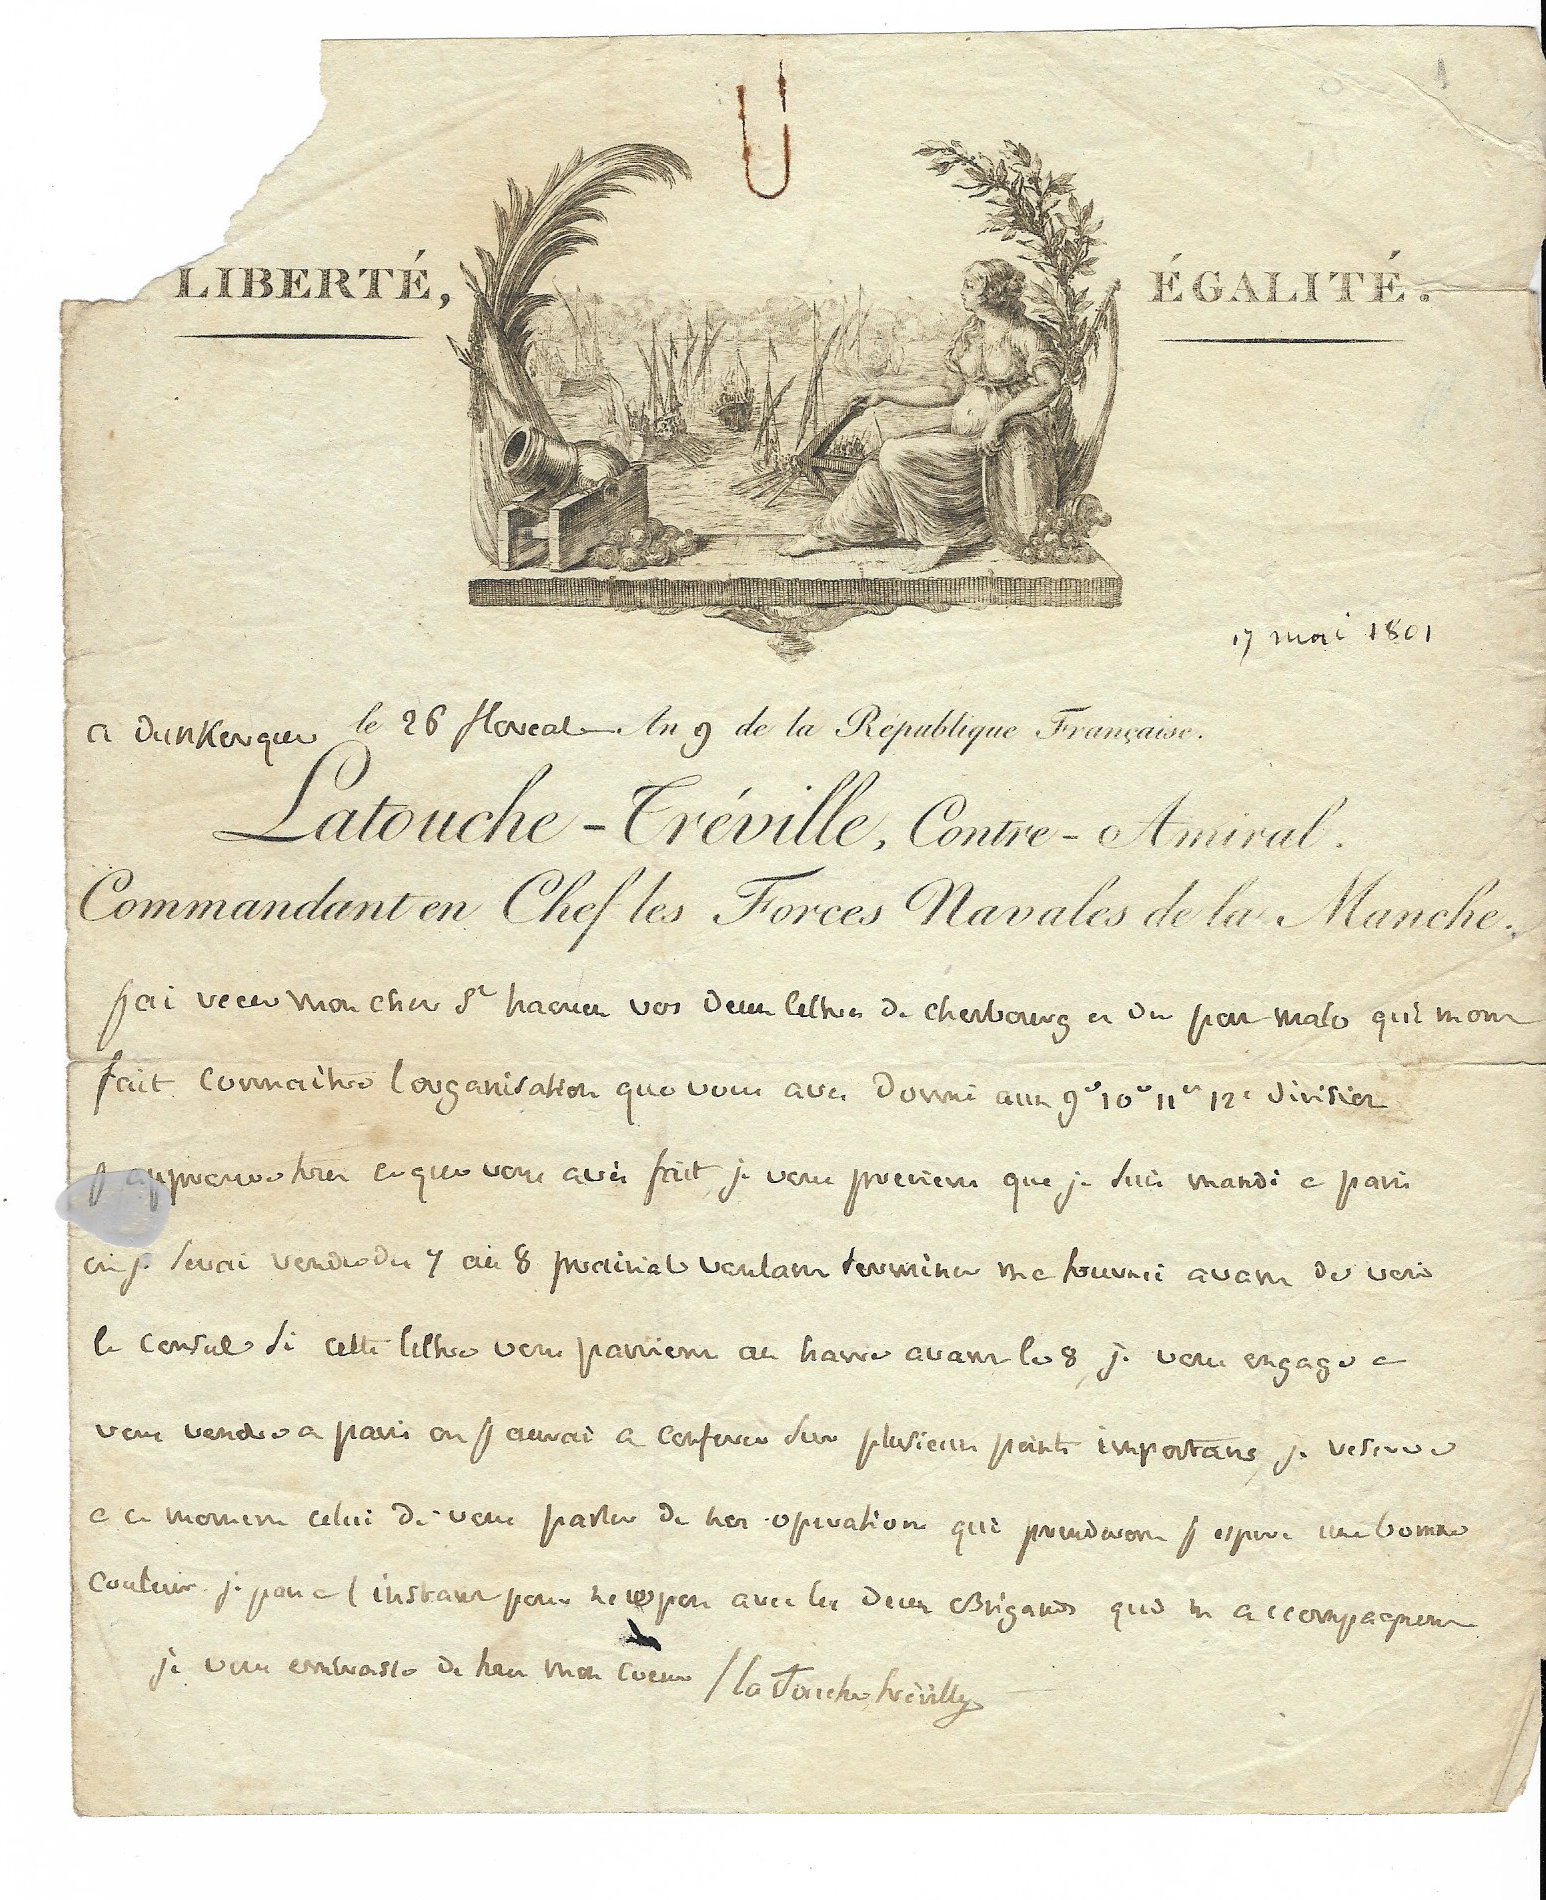 LIBERTÉ, ÉGALITÉ.
17 mai 1801
a Dunkerque le 26 floreal An 9 de la République Française.
Latouche-Tréville, Contre-Amiral.
Commandant en Chef les Forces Navales de la Manche.
j ai recu mon cher St haouen vos deux lettres de cherbourg et du port malo qui mont
fait connaitre lorganisation que vous avez donné aux 9e 10e 11e 12e division
j approuve tres ce que vous avés fait, je vous previens que je suis mandé a paris
ou je serai rendre du 7 au 8 prairial voulant terminer ma avant de voir
le consul si cette lettre vous parvient au havre avant le 8, je vous engage a
vous rendre a paris ou j aurai a conferer sur plusieurs points importans, je reserve
a ce moment celui de vous parler de nos operations qui prenderont j espere une bonne
couleur. je pars a l instant pour avec les deux Brigands qui m accompagnent
je vous embrasse de tout mon coeur / la Touche treville